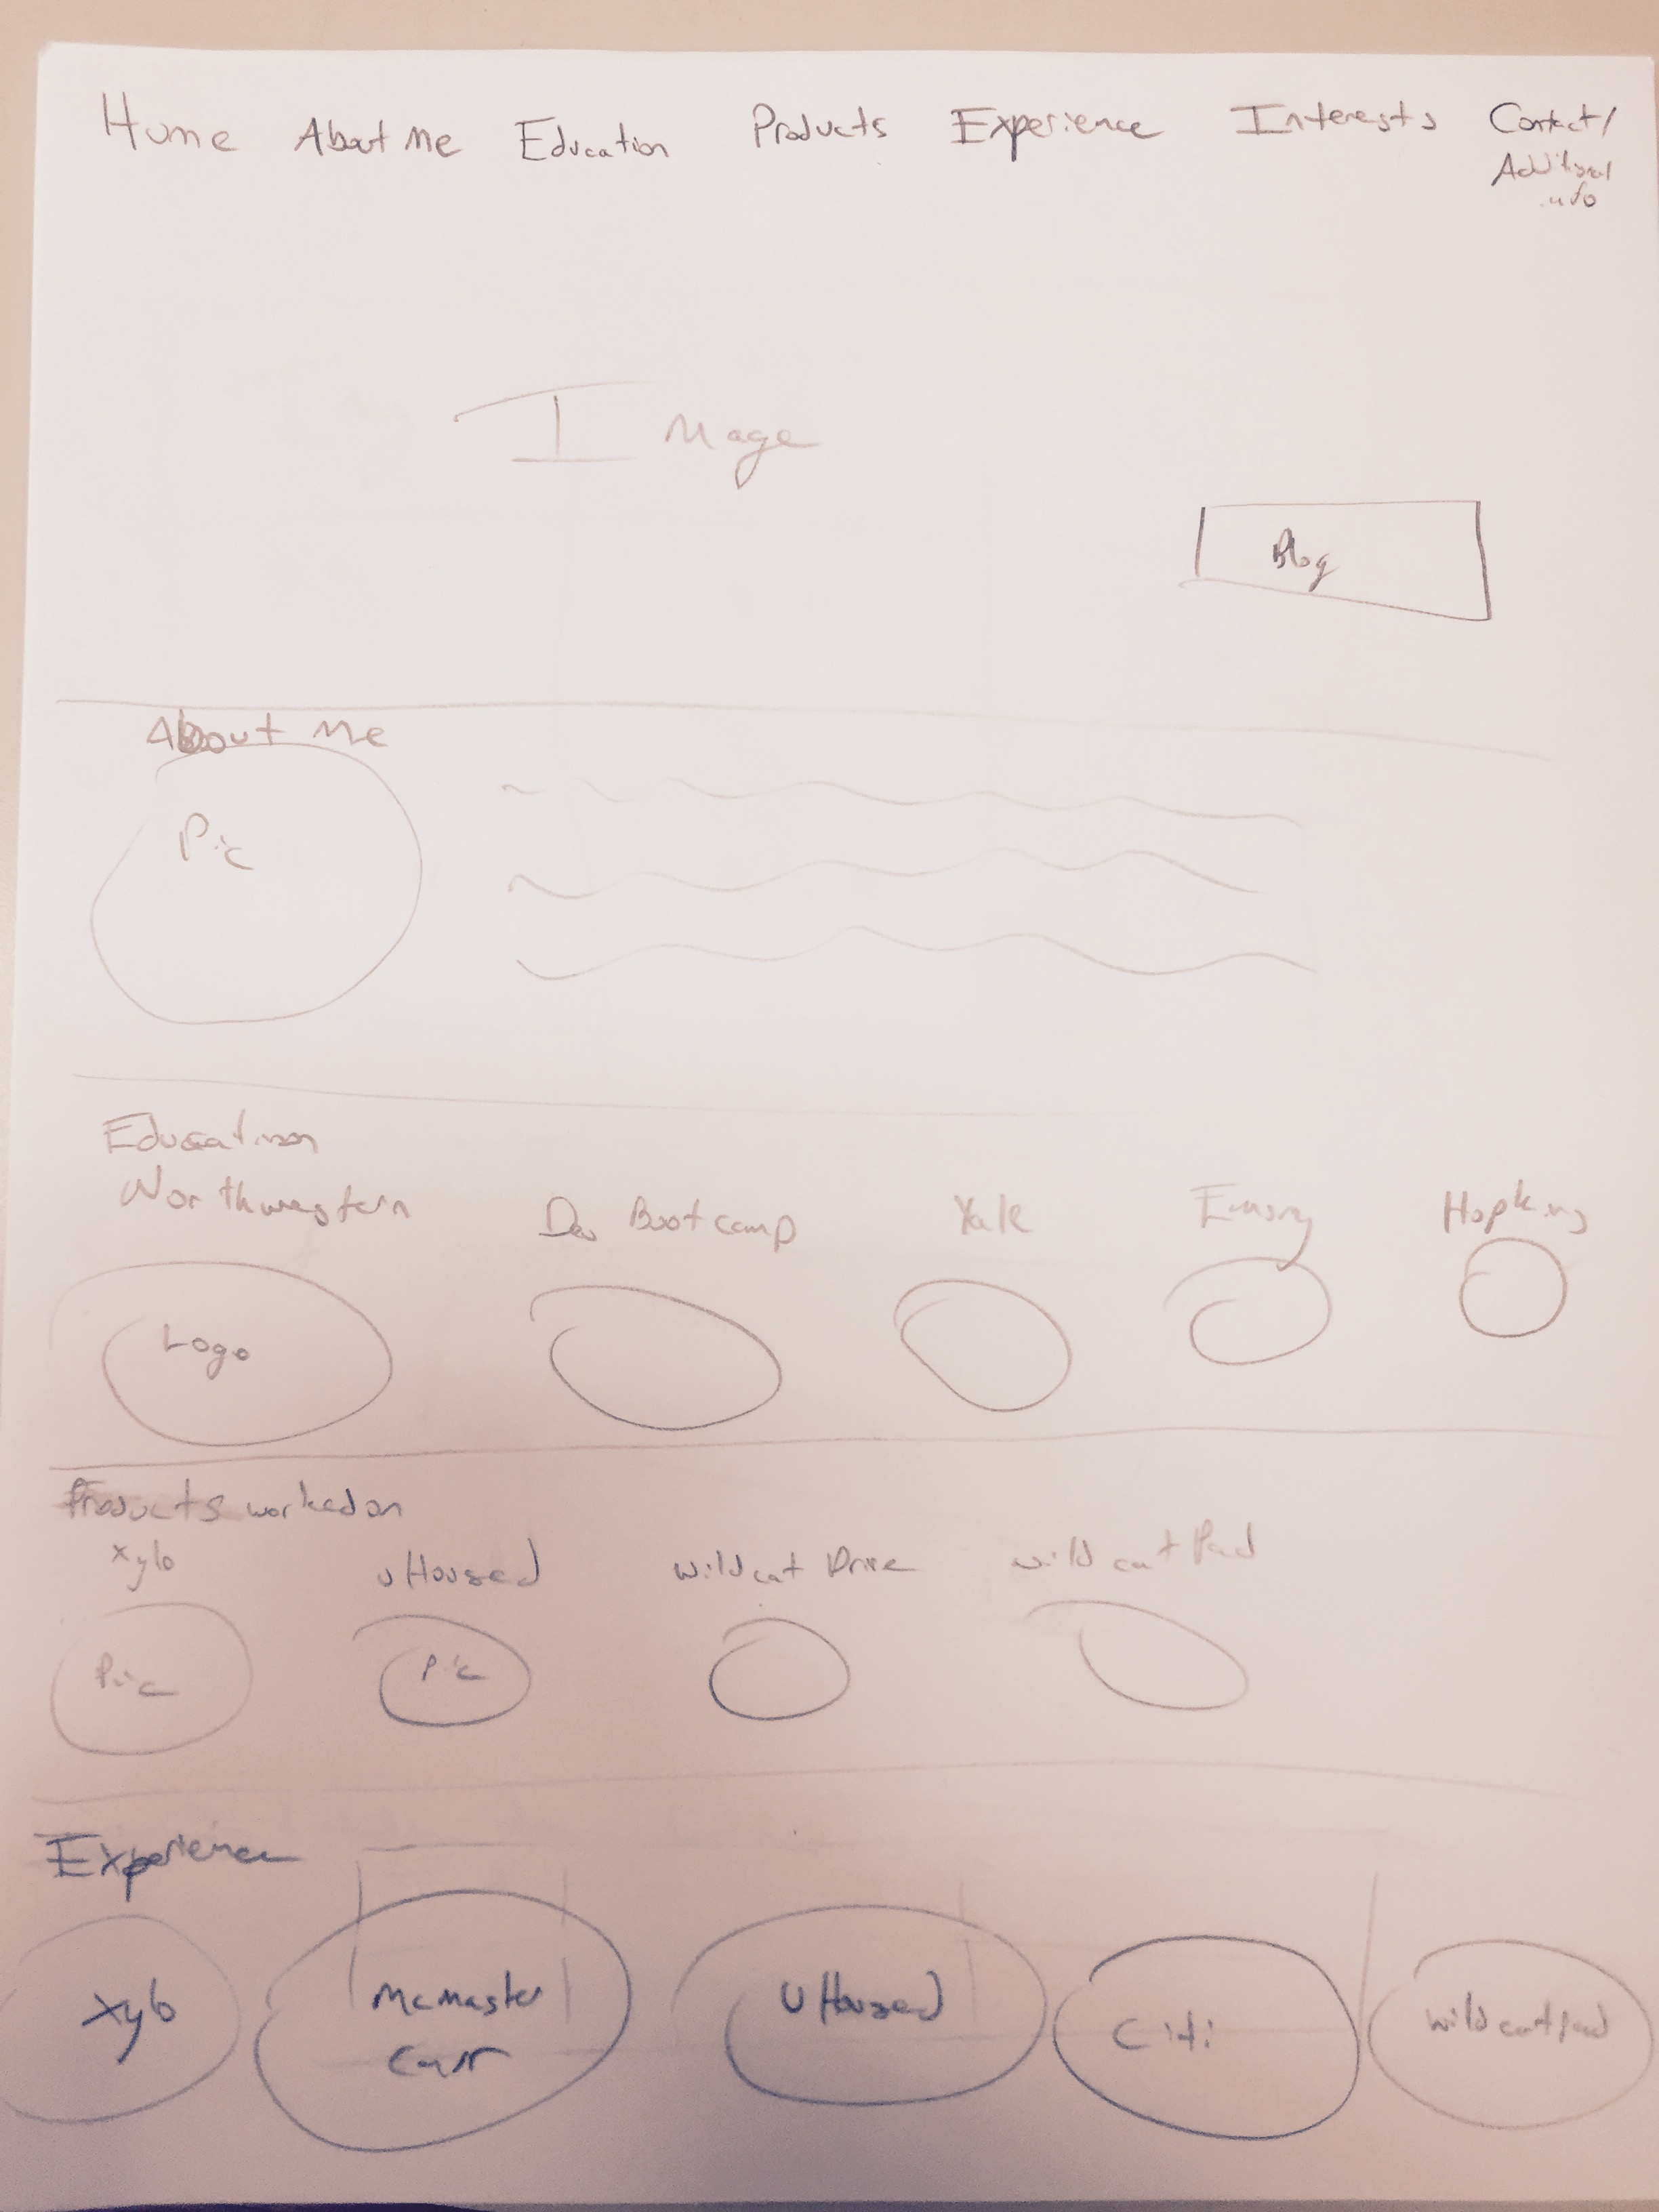 Home About Me Education Products Experience Interests Contact/
Additional
info
Image
Blog
About Me
Pic
Education
Northwestern Dev Bootcamp Yale Emory Hopkins
Logo
Products worked on
Xylo uHoused wildcat Drive wildcat Pad
Pic Pic
Experience
Xylo Mcmaster Carr UHoused Citi wildcatpad